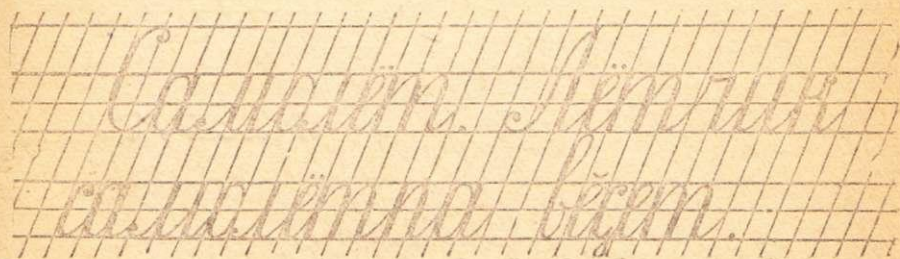 Самолёт. Лётчик
самолётпа вĕҫет.